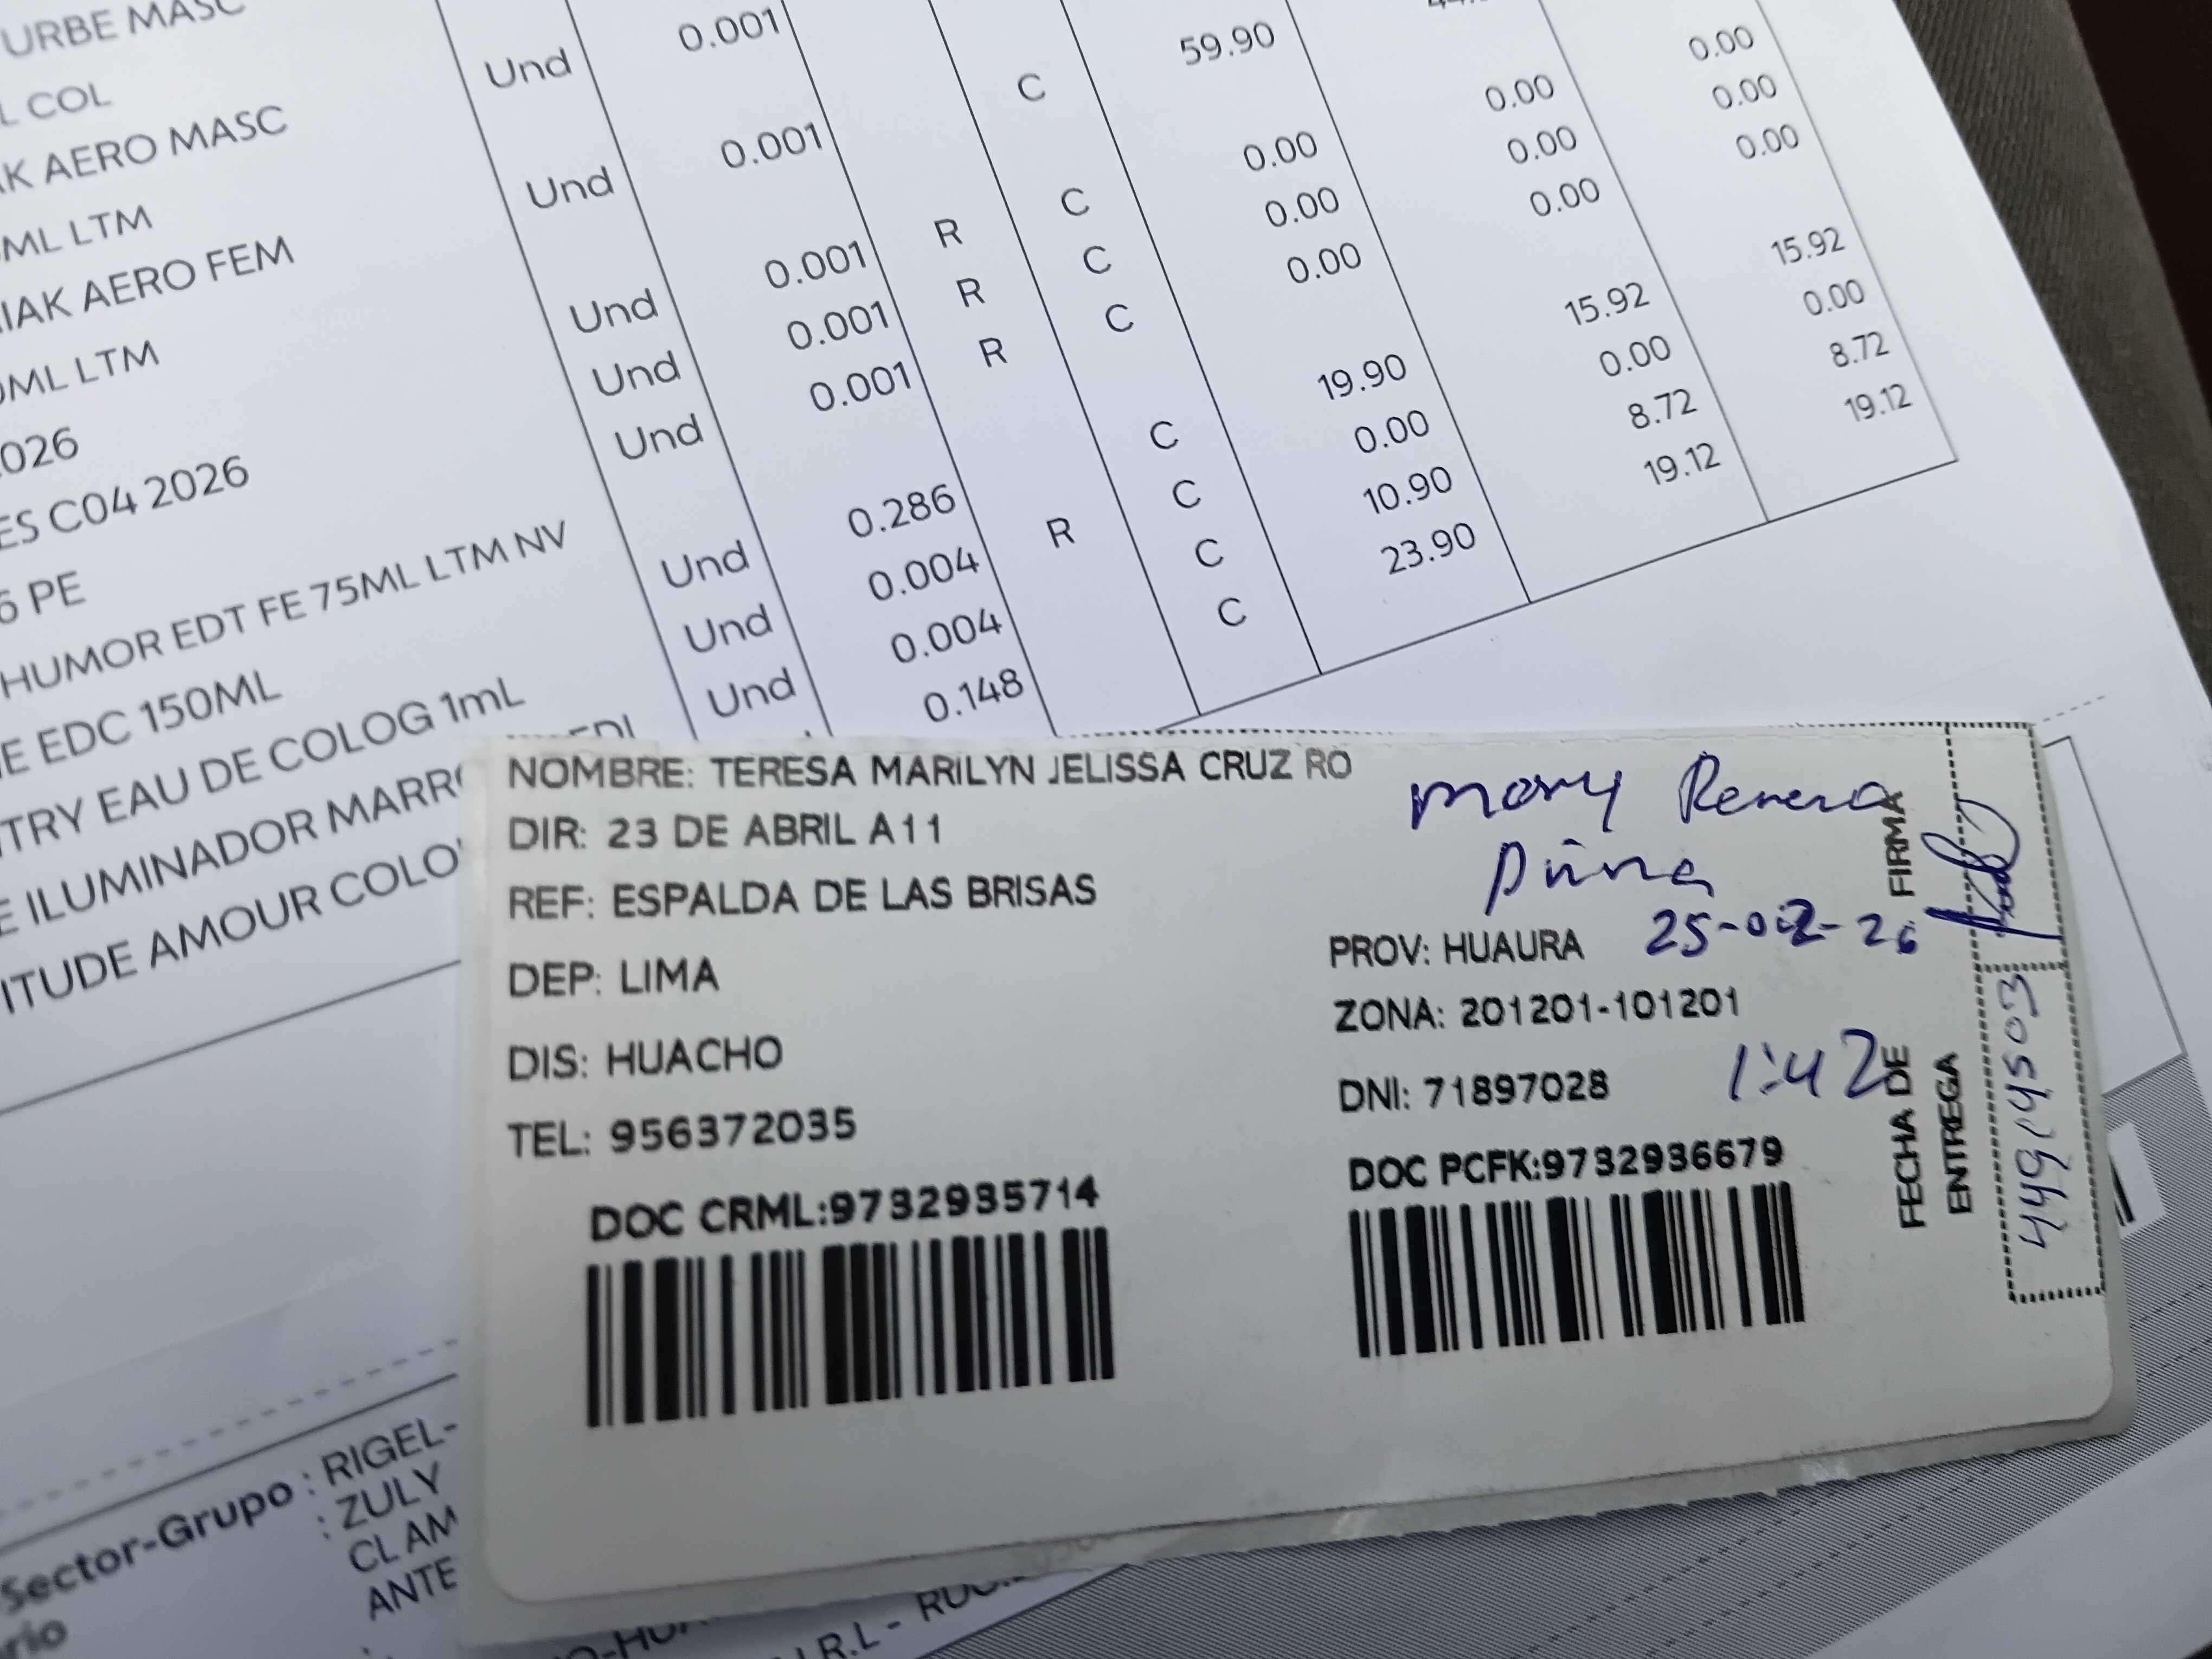 URBE MASC
L COL
AK AERO MASC
ML LTM
IAK AERO FEM
ML LTM
026
ES C04 2026
6 PE
HUMOR EDT FE 75ML LTM NV
E EDC 150ML
TRY EAU DE COLOG 1mL
E ILUMINADOR MARR
ITUDE AMOUR COLO
Und 0.001 C 59.90
Und 0.001 C 0.00 0.00 0.00
Und 0.001 R C 0.00 0.00 0.00
Und 0.001 R C 0.00 0.00 0.00
Und 0.001 R
Und 0.286 C 19.90 15.92 15.92
Und 0.004 R C 0.00 0.00 0.00
Und 0.004 C 10.90 8.72 8.72
0.148 C 23.90 19.12 19.12
NOMBRE: TERESA MARILYN JELISSA CRUZ RO
DIR: 23 DE ABRIL A11
REF: ESPALDA DE LAS BRISAS
DEP: LIMA
DIS: HUACHO
TEL: 956372035
DOC CRML:9732935714
PROV: HUAURA
25-02-26
ZONA: 201201-101201
DNI: 71897028
1:42
DOC PCFK:9732936679
FIRMA
FECHA DE
ENTREGA
Sector-Grupo : RIGEL-
: ZULY
CLAM
ANTE
rio
I.R.L - RUC: